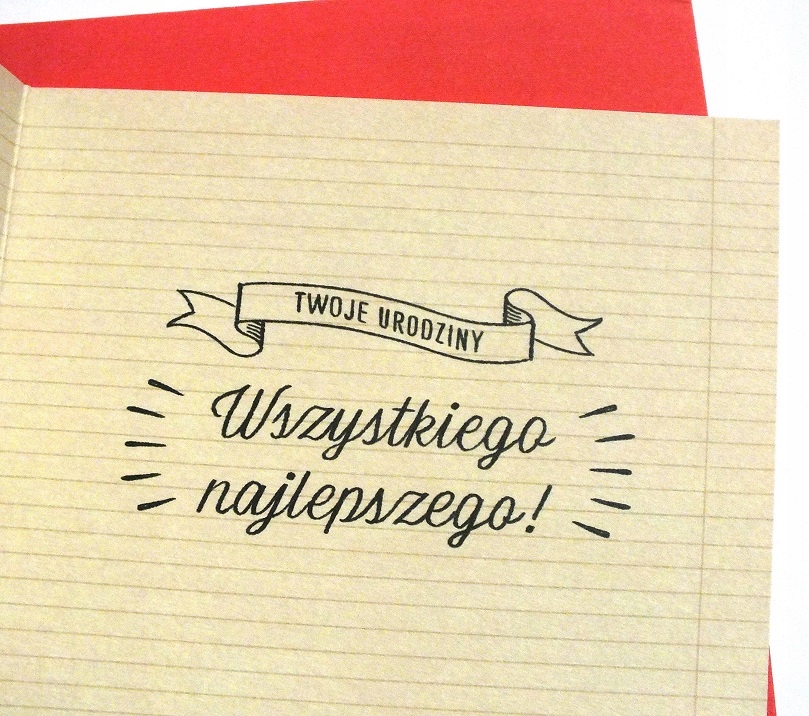 TWOJE URODZINY
Wszystkiego
najlepszego!